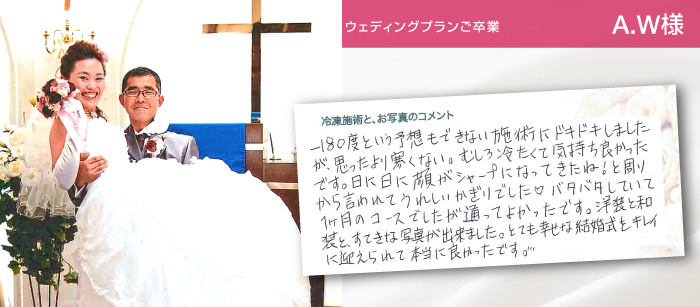 ウェディングプランご卒業
A.W様
冷凍施術と、お写真のコメント
-180度という予想もできない施術にドキドキしました
が、思ったより寒くない。むしろ冷たくて気持ち良かった
です。日に日に顔がシャープになってきたね!と周り
から言われてうれしいかぎりでした♡バタバタしていて
1ヶ月のコースでしたが通ってよかったです。洋装と和
装と、すてきな写真が出来ました。とても幸せな結婚式をキレイ
に迎えられて本当に良かったです。